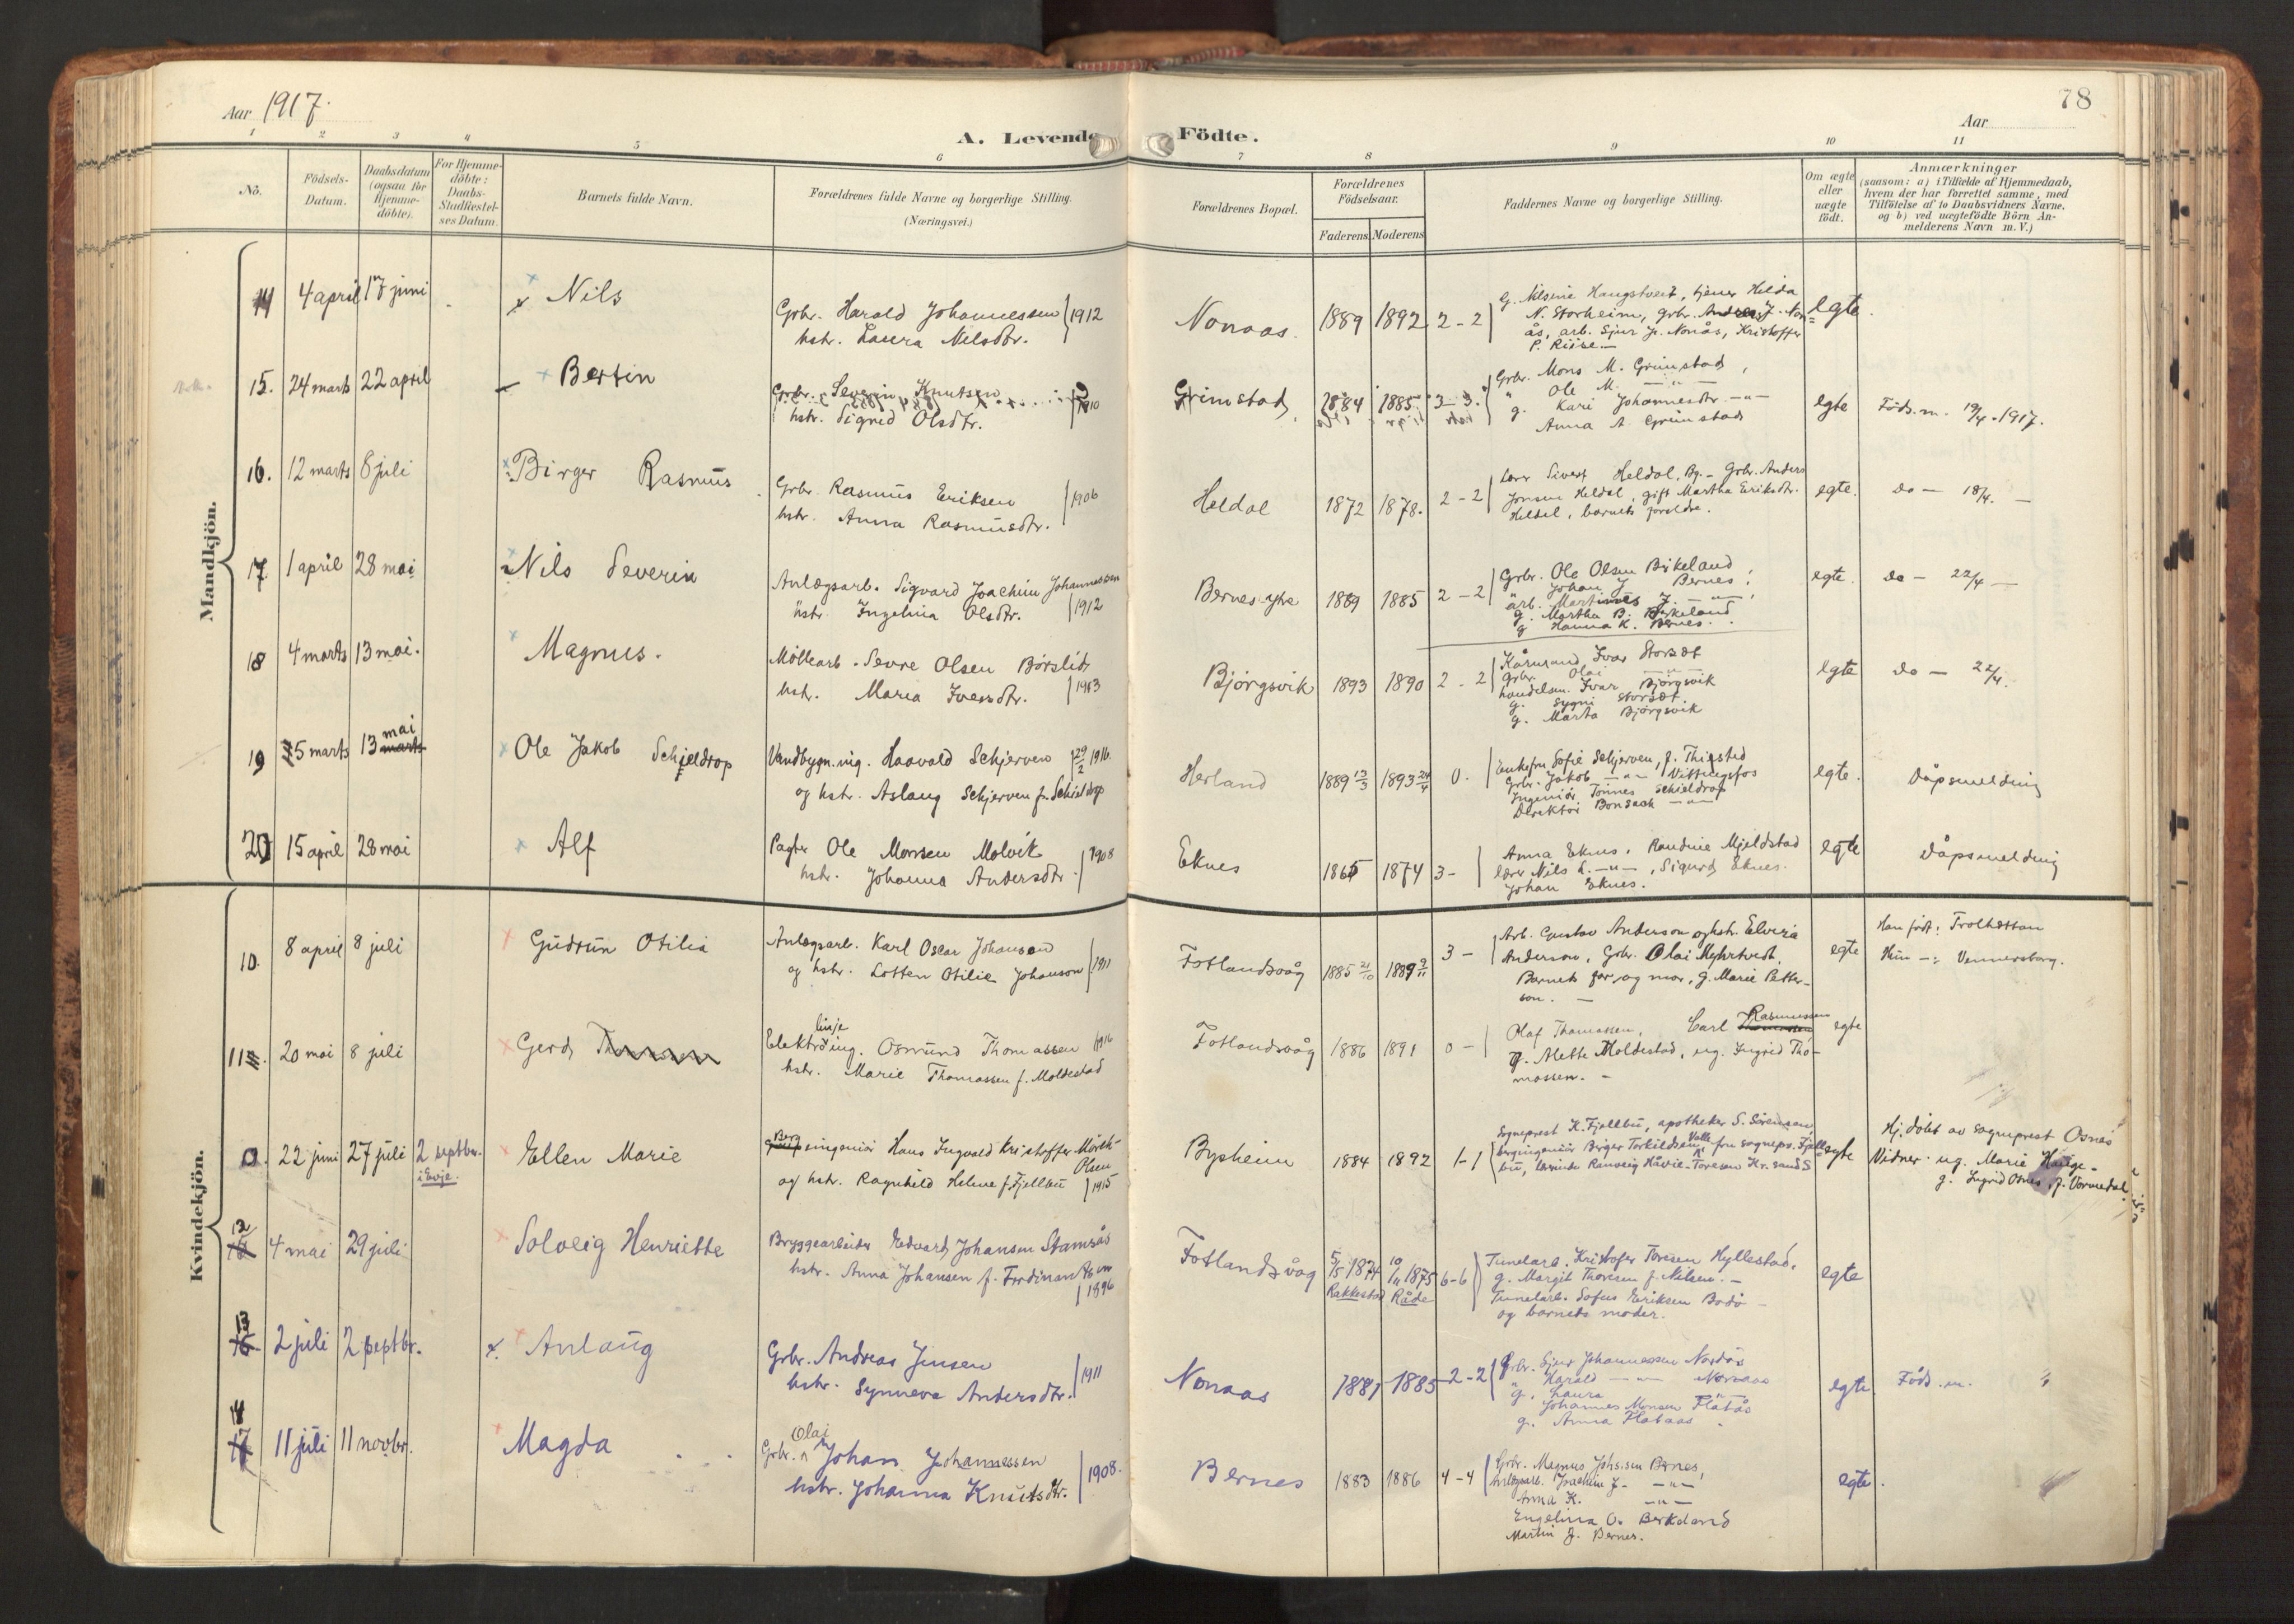 Aar 1917.
A. Levende Födte.
78
Aar
1 2 3 4 5 6 7 8 9 10 11
No.
Födsels-Datum.
Daabsdatum (ogsaa for Hjemme-döbte).
For Hjemme-döbte: Daabs-Stadfæstel-ses Datum.
Barnets fulde Navn.
Forældrenes fulde Navne og borgerlige Stilling.
(Næringsvei.)
Forældrenes Bopæl.
Forældrenes Födselsaar.
Faderens. Moderens.
Faddernes Navne og borgerlige Stilling.
Om ægte eller uægte födt.
Anmærkninger
(saasom: a) i Tilfælde af Hjemmedaab,
hvem der har forrettet samme, med
Tilföielse af to Daabsvidners Navne,
og b) ved uægtefödte Börn An-
melderens Navn m. V.)
Mandkjön.
14 4 april 17 juni Nils
Grbr. Harald Johannessen 1912
hstr. Laura Nilsdtr.
Nonaas. 1889 1892 2-2
N. Storheim, grbr. J. Non=
ås, arb. Sjur J. Nonås, Kristoffer
P. Riise.
egte
15. 24 marts 22 april Bertin
Grbr. Severin Knutsen 1910
hstr. Sigrid Olsdtr.
Grimstad, 1884 1885 3-3.
Grbr. Mons M. Grimstad,
" Ole M. —"—
g. Kari Johannesdtr. —"—
Anna A. Grimstad
egte Föds.m. 19/4. 1917.
16. 12 marts 8 juli Birger Rasmus
Grbr. Rasmus Eriksen 1906
hstr. Anna Rasmusdtr.
Heldal 1872 1878. 2-2
Lærer Sivert Heldal, Bg. Grbr. Anders
Jonsen Heldal, gift Martha Eriksdtr.
Heldal, barnets foreldre.
egte. do — 18/4. —
17 1 april 28 mai Nils Severin
Anlægsarb. Sigvard Joachim Johannessen
hstr. Ingelina Olsdtr. 1912
Bernes ytre 1889 1885 2-2
Grbr. Ole Olsen Birkeland,
" Johan J. Bernes,
arb. Martinus J. —"—,
g. Martha B. Birkeland
g. Hanna K. Bernes.
egte. do — 22/4 —
18 4 marts 13 mai. Magnus.
Möllearb. Sevre Olsen Börslid
hstr. Maria Iversdtr. 1913
Björgsvik 1893 1890 2-2
Kårmand Ivar Storset
Grbr. Olai —"—
handelsm. Ivar Björgsvik
g. Sygni Storset
g. Marta Björgsvik
egte do — 22/4.
19 5 marts 13 mai marts Ole Jakob Schjeldrop
Vandbygn.ing. Haavald Schjerven 29/2 1916.
og hstr. Aslaug Schjerven f. Schieldrop
Herland 1889 13/3 1893 24/4 0.
Enkefru Sofie Schjerven, f. Thisted
Grbr. Jakob —"— Vittingsfos
Ingeniör Tönnes Schieldrop
Direktör Bonsach —"—
egte. Dåpsmelding
20 15 april 28 mai Alf
Pagter Ole Monsen Molvik 1908
hstr. Johanna Andersdtr.
Eknes 1865 1874 3-
Anna Eknes, Raudine Mjeldstad
lærer Nils L. —"—, Sigurd Eknes.
Johan Eknes.
egte Dåpsmelding
Kvindekjön.
10. 8 april 8 juli Gudrun Otilia
Anlægsarb. Karl Oscar Johanson
og hstr. Lotten Otilie Johanson 1911
Fotlandsvåg 1885 21/10 1889 9/11 3 -
Arb. Gustav Anderson og hstr. Elvira
Anderson, Grbr. Olai Myhrtvedt,
Barnets far og mor, g. Marie Petter-
son. —
egte
Han født: Trolhættan
Hun —: Vennersborg.
11. 20 mai 8 juli Gerd
linje
Elektroing. Osmund Thomassen 1916
hstr. Marie Thomassen f. Moldestad
Fotlandsvåg 1886 1891 0 -
Olaf Thomassen, Carl Thomassen Rasmussen
g. Mette Moldestad, ug. Ingrid Tho-
massen. —
egte
22 juni 27 juli 2 septbr. i Evje. Ellen Marie
Bergsingeniör Hans Ingvald Kristoffer Mörch-
Olsen
og hstr. Ragnhild Helene f. Fjellbu 1915
Bysheim 1884 1892 1-1
Sogneprest K. Fjellbu, apotheker S. Sörensen,
bergingeniör Berger Torkildsen Valle, fru sogneps. Fjell-
bu, Ranveig Håvie-Toresen Kr.sand S
egte
Hj. döbt av sogneprest Osnes
Vidner: ug. Marie Hauge-
g. Ingrid Osnes, f. Vormedal.
12 4 mai 29 juli Solveig Henriette
Bryggearbeider Edvard Johansen Stamsås
hstr. Anna Johansen f. Ferdinandsen
1896
Fotlandsvåg 5/5 1874 Rakkestad 10/11 1875 Råde 6-6
Tunelarb. Kristofer Toresen Hyllestad,
g. Margit Thoresen f. Nilsen. —
Tunelarb. Sofus Eriksen Bodö —
og barnets moder.
egte
13 2 juli 2 septbr. Anlaug
Grbr. Andreas Jensen 1911
hstr. Synneva Andersdtr.
Nonaas 1881 1885 2-2
Grbr. Sjur Johannessen Nordås
" Harald —"— Nonaas
g. Laura —"—
Johannes Monsen Flatås
g. Anna Flataas
egte. Föds.m. "
14 11 juli 11 novbr. Magda
Olai
Grbr. Johan Johannessen 1908.
hstr. Johanna Knutsdtr.
Bernes 1883 1886 4-4
Grbr. Magnus Johs.sen Bernes,
Anlægsarb. Joachim J. —"—
Anna K. —"—
Engelina O. Berkeland
Martin J. Bernes.
egte.